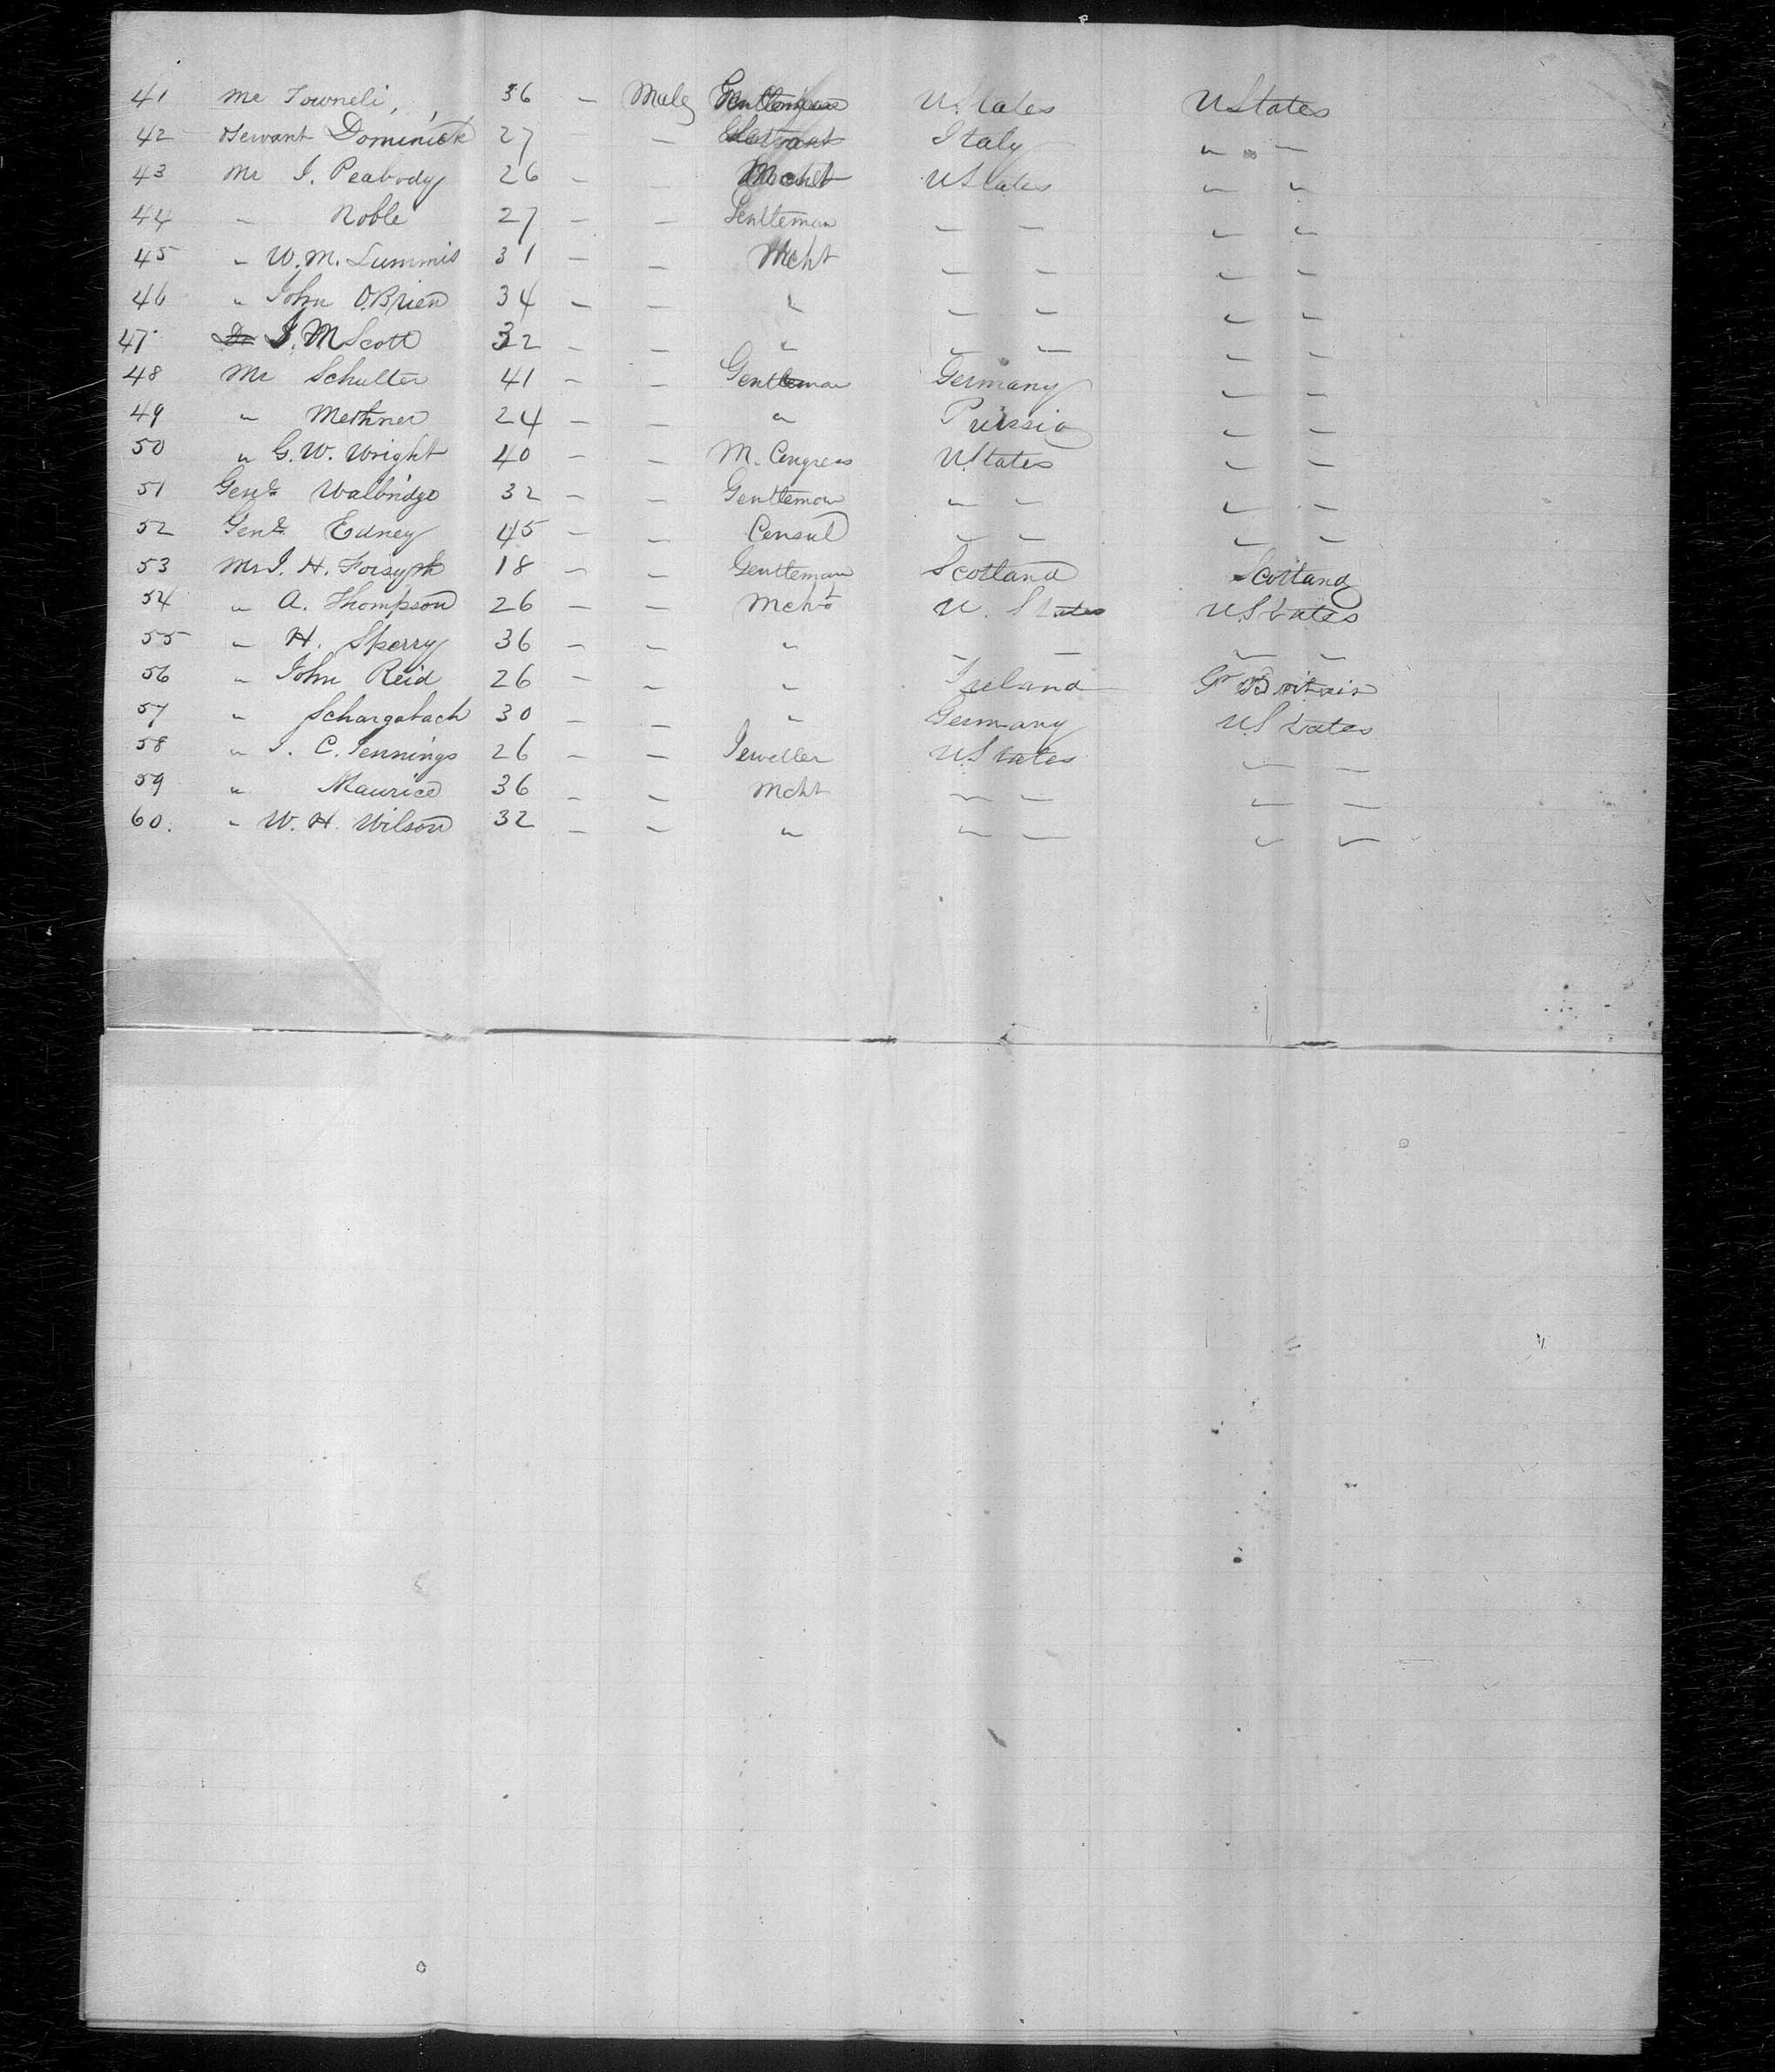 41 Mr Towneli, 36 — Male Gentleman U.States UStates
42 Servant Dominick 27 — Servant Italy " " —
43 Mr I. Peabody 26 — — Mcht UStates " "
44 " Noble 27 — — Gentleman — — " "
45 " W.M. Lummis 31 — — Mcht — — " "
46 " John O.Brien 34 — — " — — " "
47 I. M Scott 32 — — " — — " "
48 Mr Schulter 41 — — Gentleman Germany " "
49 " Methner 24 — — " Prussia " "
50 " G.W. Wright 40 — — M. Congress UStates " "
51 Genl Walbridge 32 — — Gentleman " " " "
52 Genl Edney 45 — — Consul " " " "
53 Mr I. H. Forsyth 18 — — Gentleman Scotland Scotland
54 " A. Thompson 26 — — Mcht U. States UStates
55 " H. Sperry 36 — — " — — " "
56 " John Reid 26 — — " Ireland Gr Britain
57 " 30 — — " Germany US tates
58 " I. C. Jennings 26 — — Jeweller UStates — —
59 " Maurice 36 — — Mcht — — " "
60. " W. H. Wilson 32 — — " — — " "